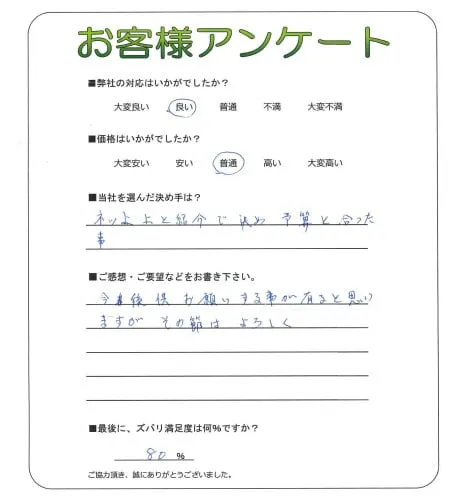 お客様アンケート
■弊社の対応はいかがでしたか?
大変良い 良い 普通 不満 大変不満
■価格はいかがでしたか?
大変安い 安い 普通 高い 大変高い
■当社を選んだ決め手は?
と紹介で決め 予算と合った
事
■ご感想・ご要望などをお書き下さい。
今後 お願いする事が有ると思い
ますが その節は よろしく
■最後に、ズバリ満足度は何%ですか?
80 %
ご協力頂き、誠にありがとうございました。